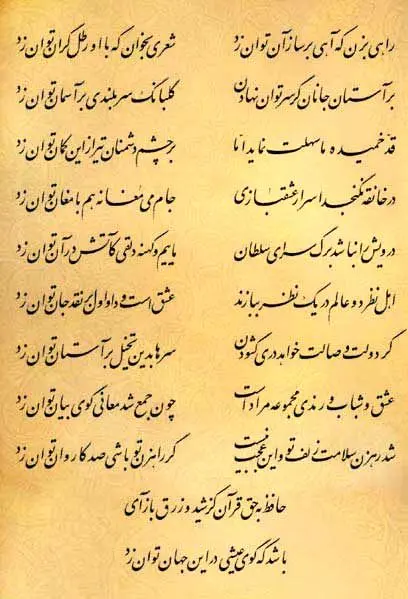 راهی بزن که آهی بر ساز آن توان زد شعری بخوان که با او رطل گران توان زد
بر آستان جانان گر سر توان نهادن گلبانگ سربلندی بر آسمان توان زد
قد خمیده ما سهلت نماید اما بر چشم دشمنان تیر از این کمان توان زد
در خانقه نگنجد اسرار عشقبازی جام می مغانه هم با مغان توان زد
درویش را نباشد برگ سرای سلطان ماییم و کهنه دلقی کآتش در آن توان زد
اهل نظر دو عالم در یک نظر ببازند عشق است و داو اول بر نقد جان توان زد
گر دولت وصالت خواهد دری گشودن سرها بدین تخیل بر آستان توان زد
عشق و شباب و رندی مجموعه مراد است چون جمع شد معانی گوی بیان توان زد
شد رهزن سلامت زلف تو وین عجب نیست گر راهزن تو باشی صد کاروان توان زد
حافظ به حق قرآن کز شید و زرق بازآی
باشد که گوی عیشی در این جهان توان زد